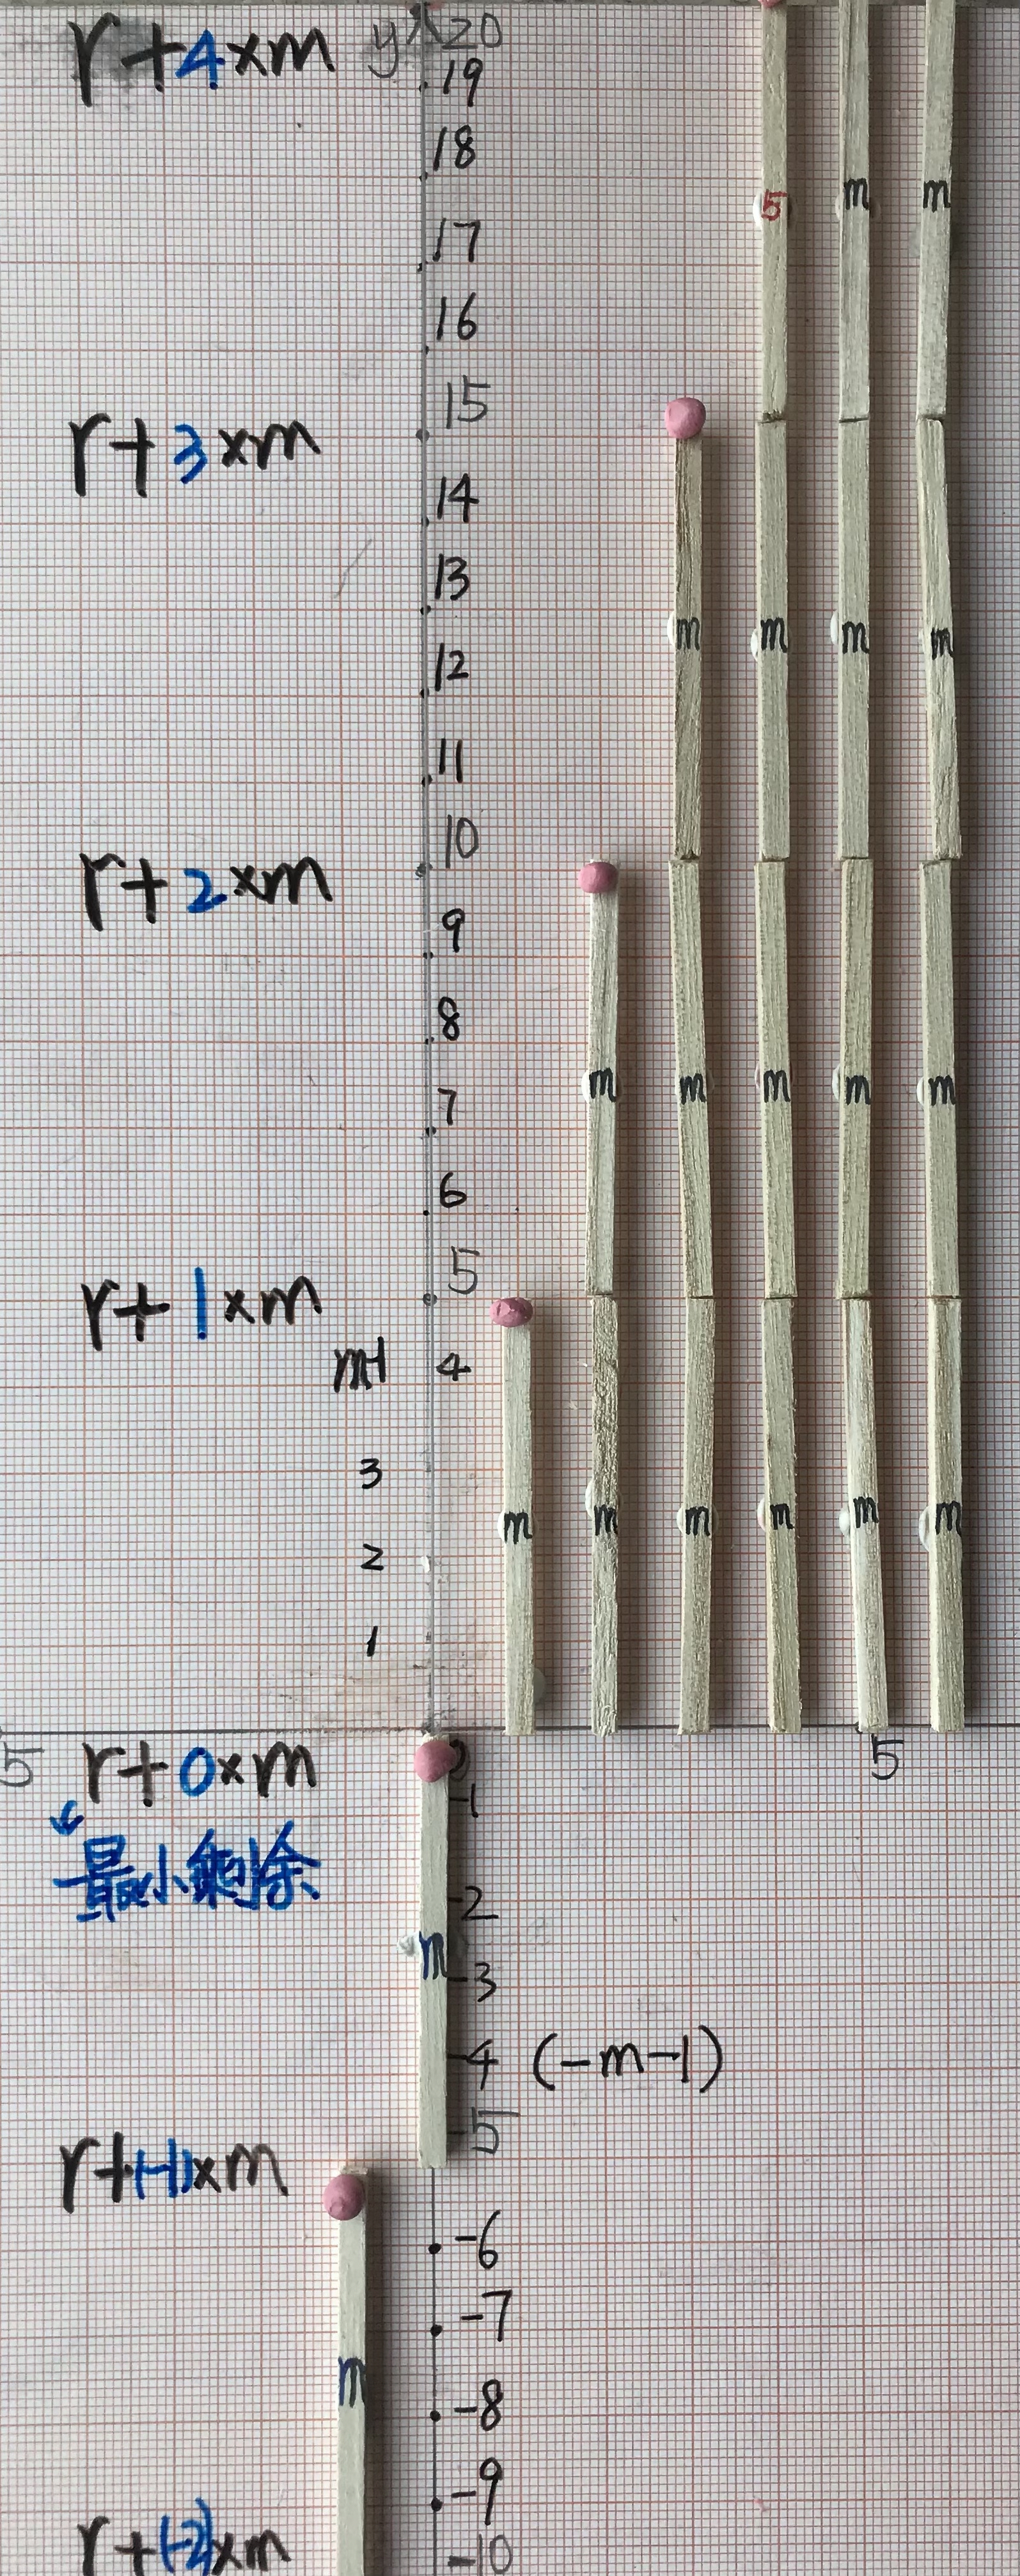 r+4×m y 20
19
18
17
5 m m
16
15
r+3×m
14
13
m m m m
12
11
10
r+2×m
9
8
m m m m m
7
6
5
r+1×m
4
3
m m m m m m
2
1
5 r+0×m 0 5
-1
最小剩余
-2
m
-3
-4 (-m-1)
-5
r+(-1)×m
-6
-7
m
-8
-9
r+(-2)×m
-10